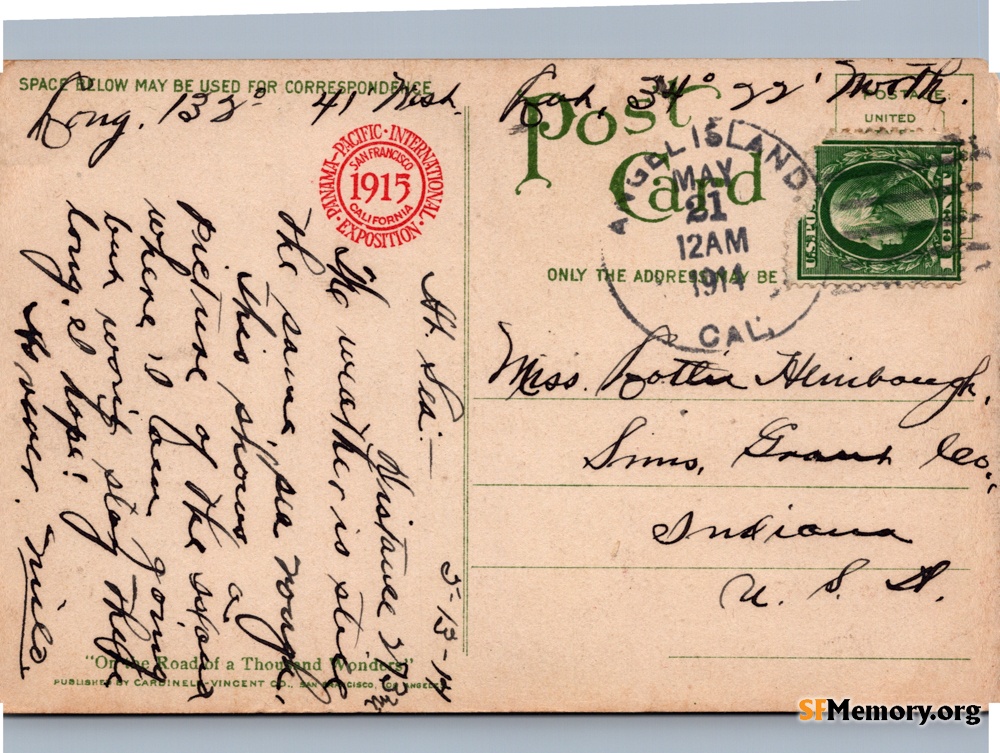 SPACE BELOW MAY BE USED FOR CORRESPONDENCE
Long. 132° 41' West. Lat. 34° 22' North.
PANAMA-PACIFIC-INTERNATIONAL
EXPOSITION
SAN FRANCISCO
1915
CALIFORNIA
Post
Card
POSTAGE
UNITED
ANGEL ISLAND.
MAY
21
12AM
1914
CAL.
U.S. POSTAGE
ONLY THE ADDRESS MAY BE
5-13-14
At. Sea:-
Distance
The weather is still
the same, sea rough.
This shows a
picture of the island
where I am going
but wont stay they
long, I hope!
As ever.
Miss. Lottie Heinbaugh,
Sims, Grant Co.,
Indiana
U. S. A.
"On the Road of a Thousand Wonders"
PUBLISHED BY CARDINELL-VINCENT CO., SAN FRANCISCO, LOS ANGELES
SFMemory.org